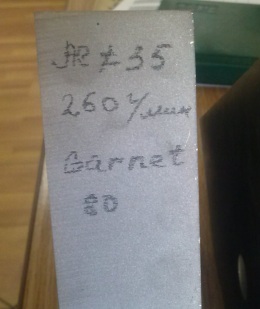 t 35
260 г/мин
Garnet
80